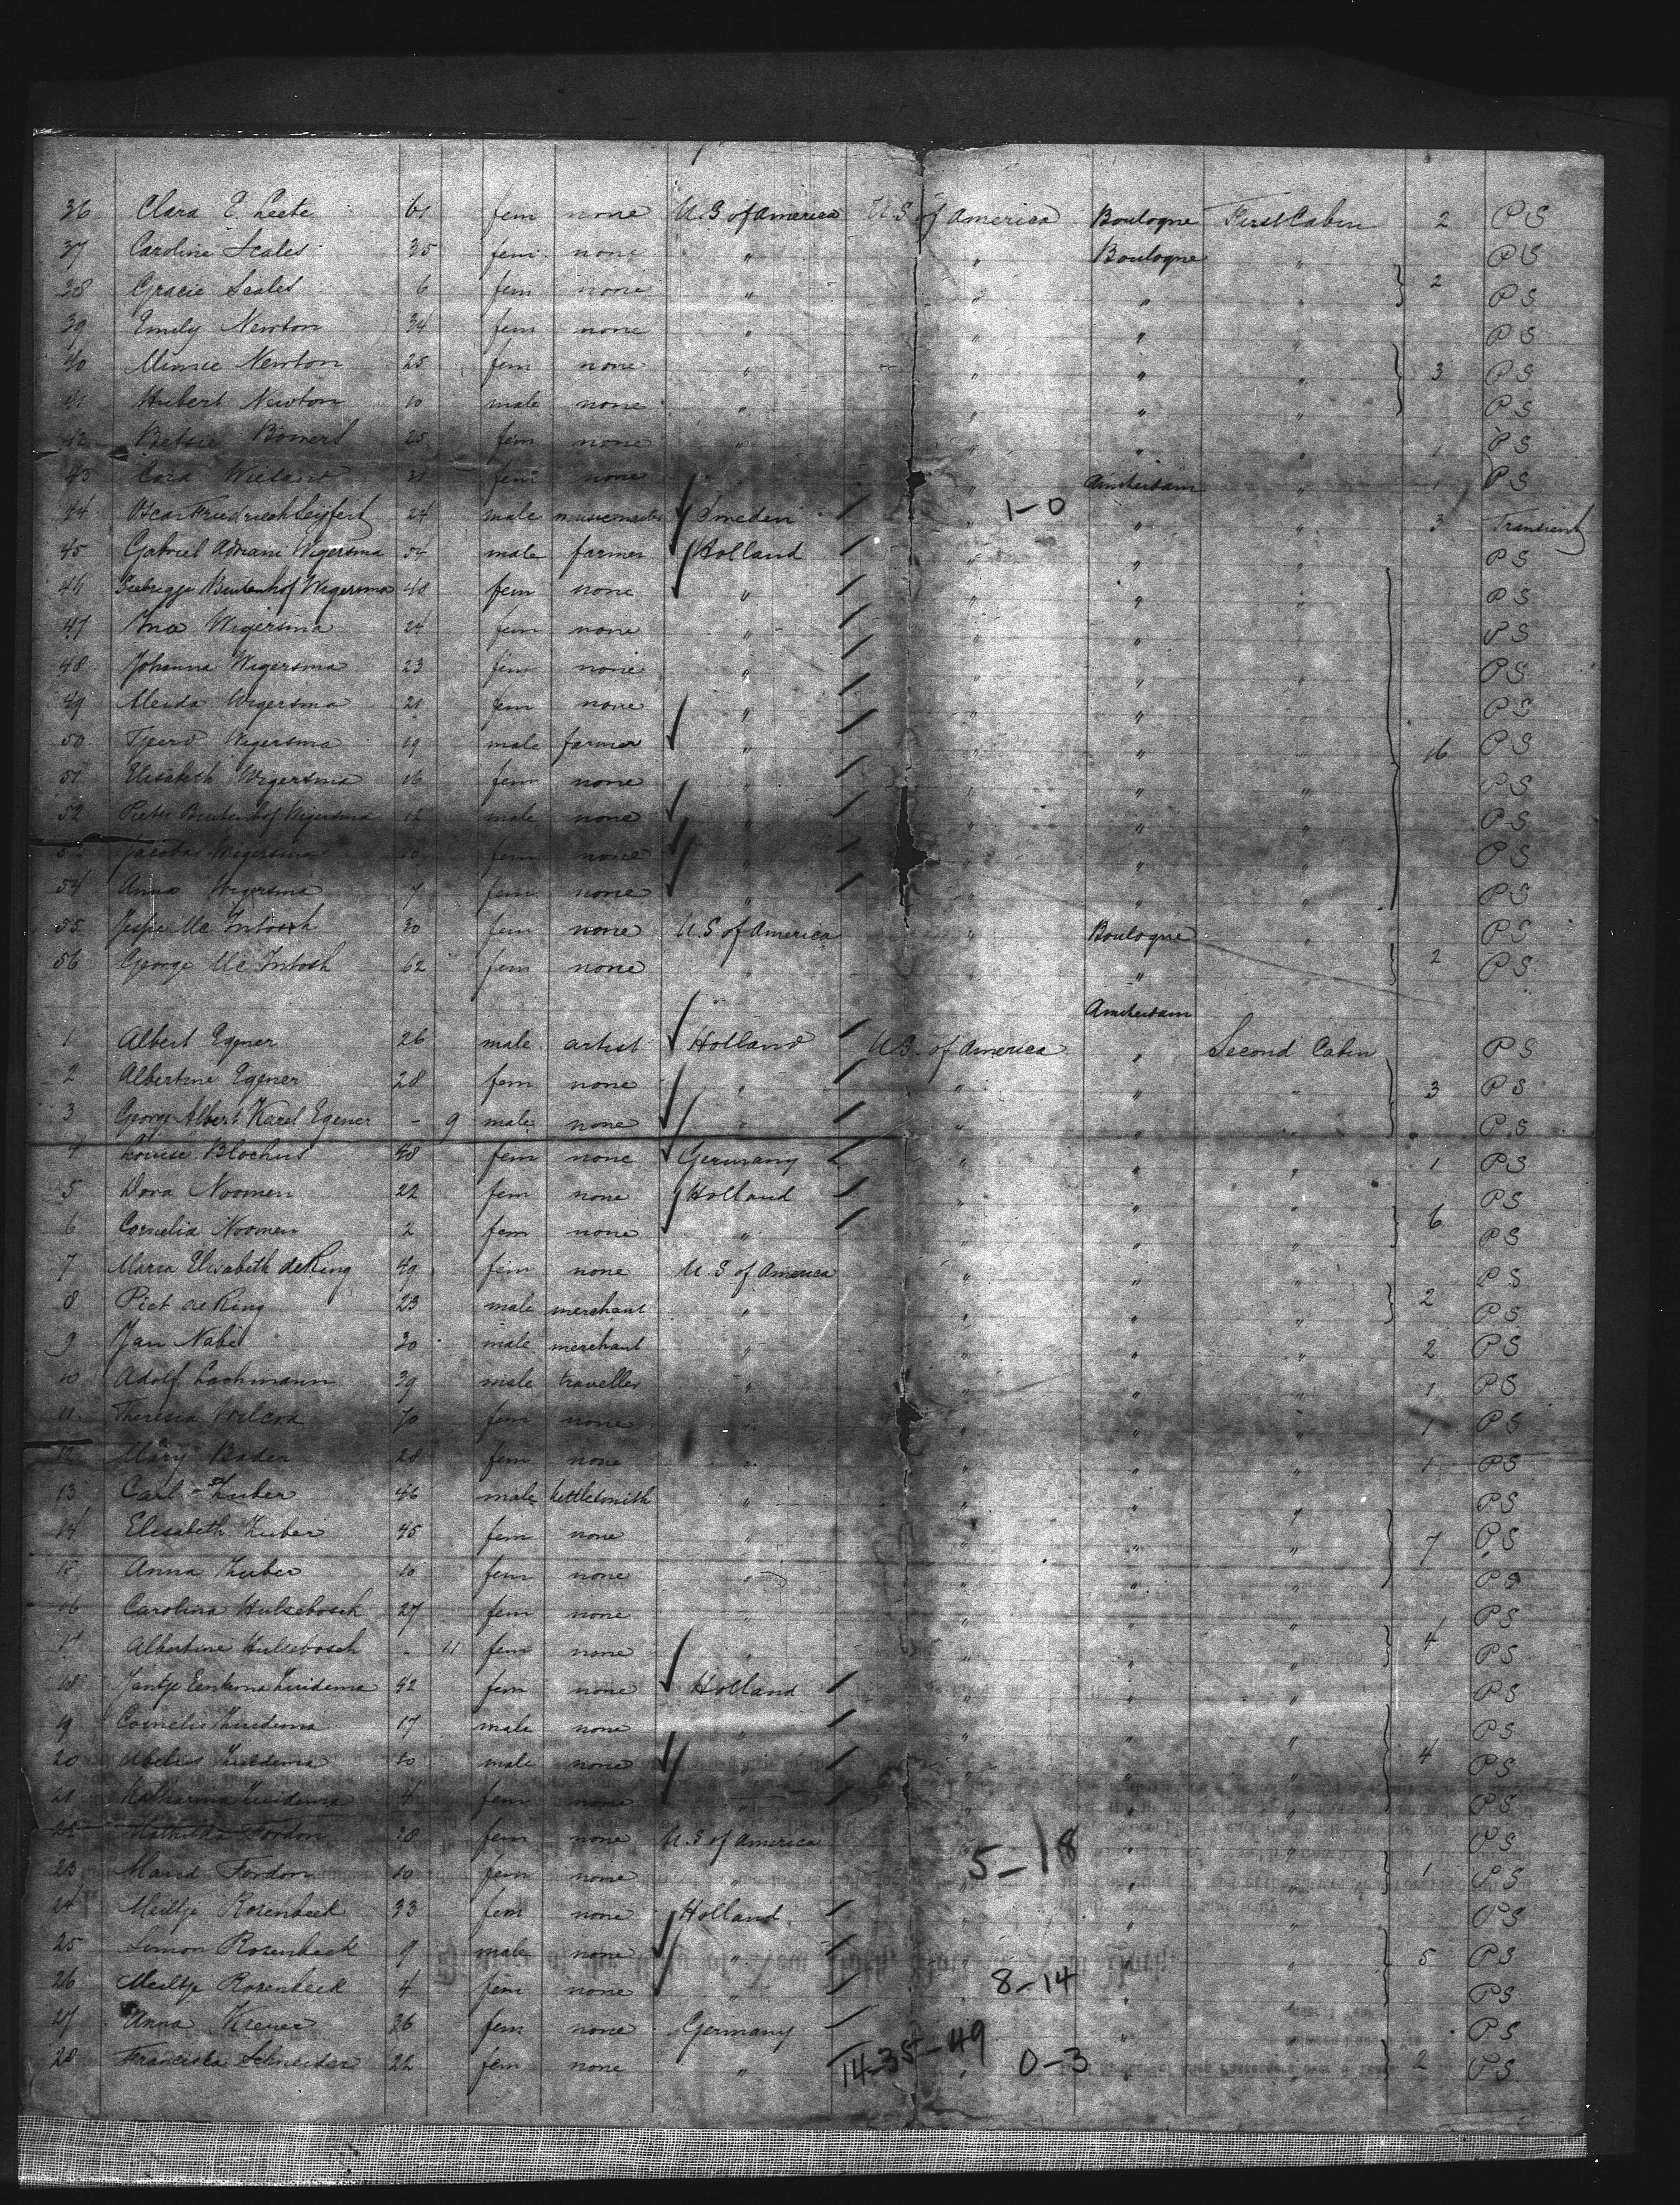 36 Clara E. Leete 61 fem none U.S of America U.S of America Boulogne First Cabin 2 PS
37 Caroline Scales 35 fem none " " Boulogne " PS
38 Gracie Scales 6 fem none " " " " 2 PS
39 Emily Newton 34 fem none " " " " PS
40 Minnie Newton 25 fem none " " " " 3 PS
41 Hubert Newton 10 male none " " " " PS
42 Betsie 25 fem none " " " " 1 PS
43 Cora 21 fem none " " Amsterdam " 1 PS
44 Oscar Friedrich Seyfert 24 male Sweden " 1-0 " " 3 Transient
45 Gabriel Adriani Wigersma 54 male farmer Holland " " " PS
46 Buitenhof Wigersma 48 fem none " " " " PS
47 Ina Wigersma 24 fem none " " " " PS
48 Johanna Wigersma 23 fem none " " " " PS
49 Wigersma 21 fem none " " " " PS
50 Tjeerd Wigersma 19 male farmer " " " " 16 PS
51 Elisabeth Wigersma 16 fem none " " " " PS
52 Pieter Buitenhof Wigersma 12 male none " " " " PS
Jacoba Wigersma 10 fem none " " " " PS
54 Anna Wigersma 7 fem none " " " " PS
55 Jessie Mc Intosh 30 fem none U.S of America " Boulogne " PS
56 George Mc Intosh 62 fem none " " " 2 PS
Amsterdam
1 Albert Egener 26 male artist Holland U.S. of America " Second Cabin PS
2 Albertine Egener 28 fem none " " " " 3 PS
3 George Albert Karel Egener - 9 male none " " " PS
4 Louise Blochus 48 fem none Germany " " " 1 PS
5 Dora Noomen 22 fem none Holland " " " PS
6 Cornelia Noomen 2 fem none " " " " 6 PS
7 Maria Elisabeth deRing 49 fem none U.S of America " " " PS
8 Piet deRing 23 male merchant " " " " 2 PS
9 Jan Nabel 30 male merchant " " " " 2 PS
10 Adolf Lachmann 39 male traveller " " " " 1 PS
11 Theresia Wilcox 70 fem none " " " " 1 PS
12 Mary Bader 28 fem none " " " " 1 PS
13 Carl Zuber 46 male kettlesmith " " " " PS
14 Elisabeth Zuber 45 fem none " " " " 7 PS
15 Anna Zuber 10 fem none " " " " PS
16 Carolina Hulsebosch 27 fem none " " " " PS
17 Albertine Hulsebosch - 11 fem none " " " " 4 PS
18 Jantje Zuidema 42 fem none Holland " " " PS
19 Cornelis Zuidema 17 male none " " " " PS
20 Abelius Zuidema 10 male none " " " " 4 PS
21 Katharina Zuidema 4 fem none " " " " PS
22 Mathilda Fordon 28 fem none U.S of America " " " PS
5-18
23 Maud Fordon 10 fem none " " " " 1 PS
24 Meiltje Rosenbeek 33 fem none Holland " " " PS
25 Simon Rosenbeek 9 male none " " " " 5 PS
26 Meiltje Rosenbeek 4 fem none " " 8-14 " " PS
27 Anna 26 fem none Germany " " " PS
28 Franciska Schneider 22 fem none " 14-35-49 " 0-3 " " 2 PS